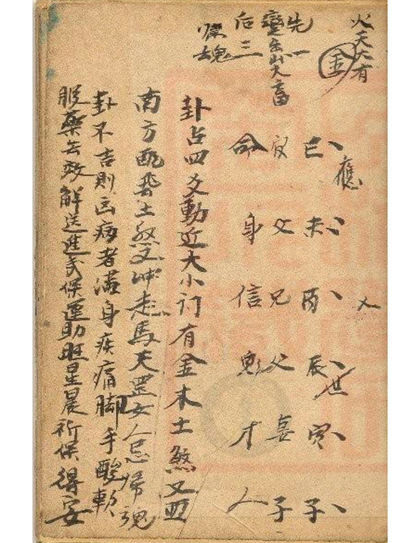 火天大有
金
應
巳未酉辰寅子
世
官父兄父妻子
命身信鬼才人
先一
變山天大畜
后三
歸魂
卦占四爻動近大小有金木土煞又四
南方土煞爻冲走馬天罡女人忌歸魂
卦不吉則凶病者滿身疾痛脚手酸軟
服藥去效解送進保運助旺星晨祈保得安